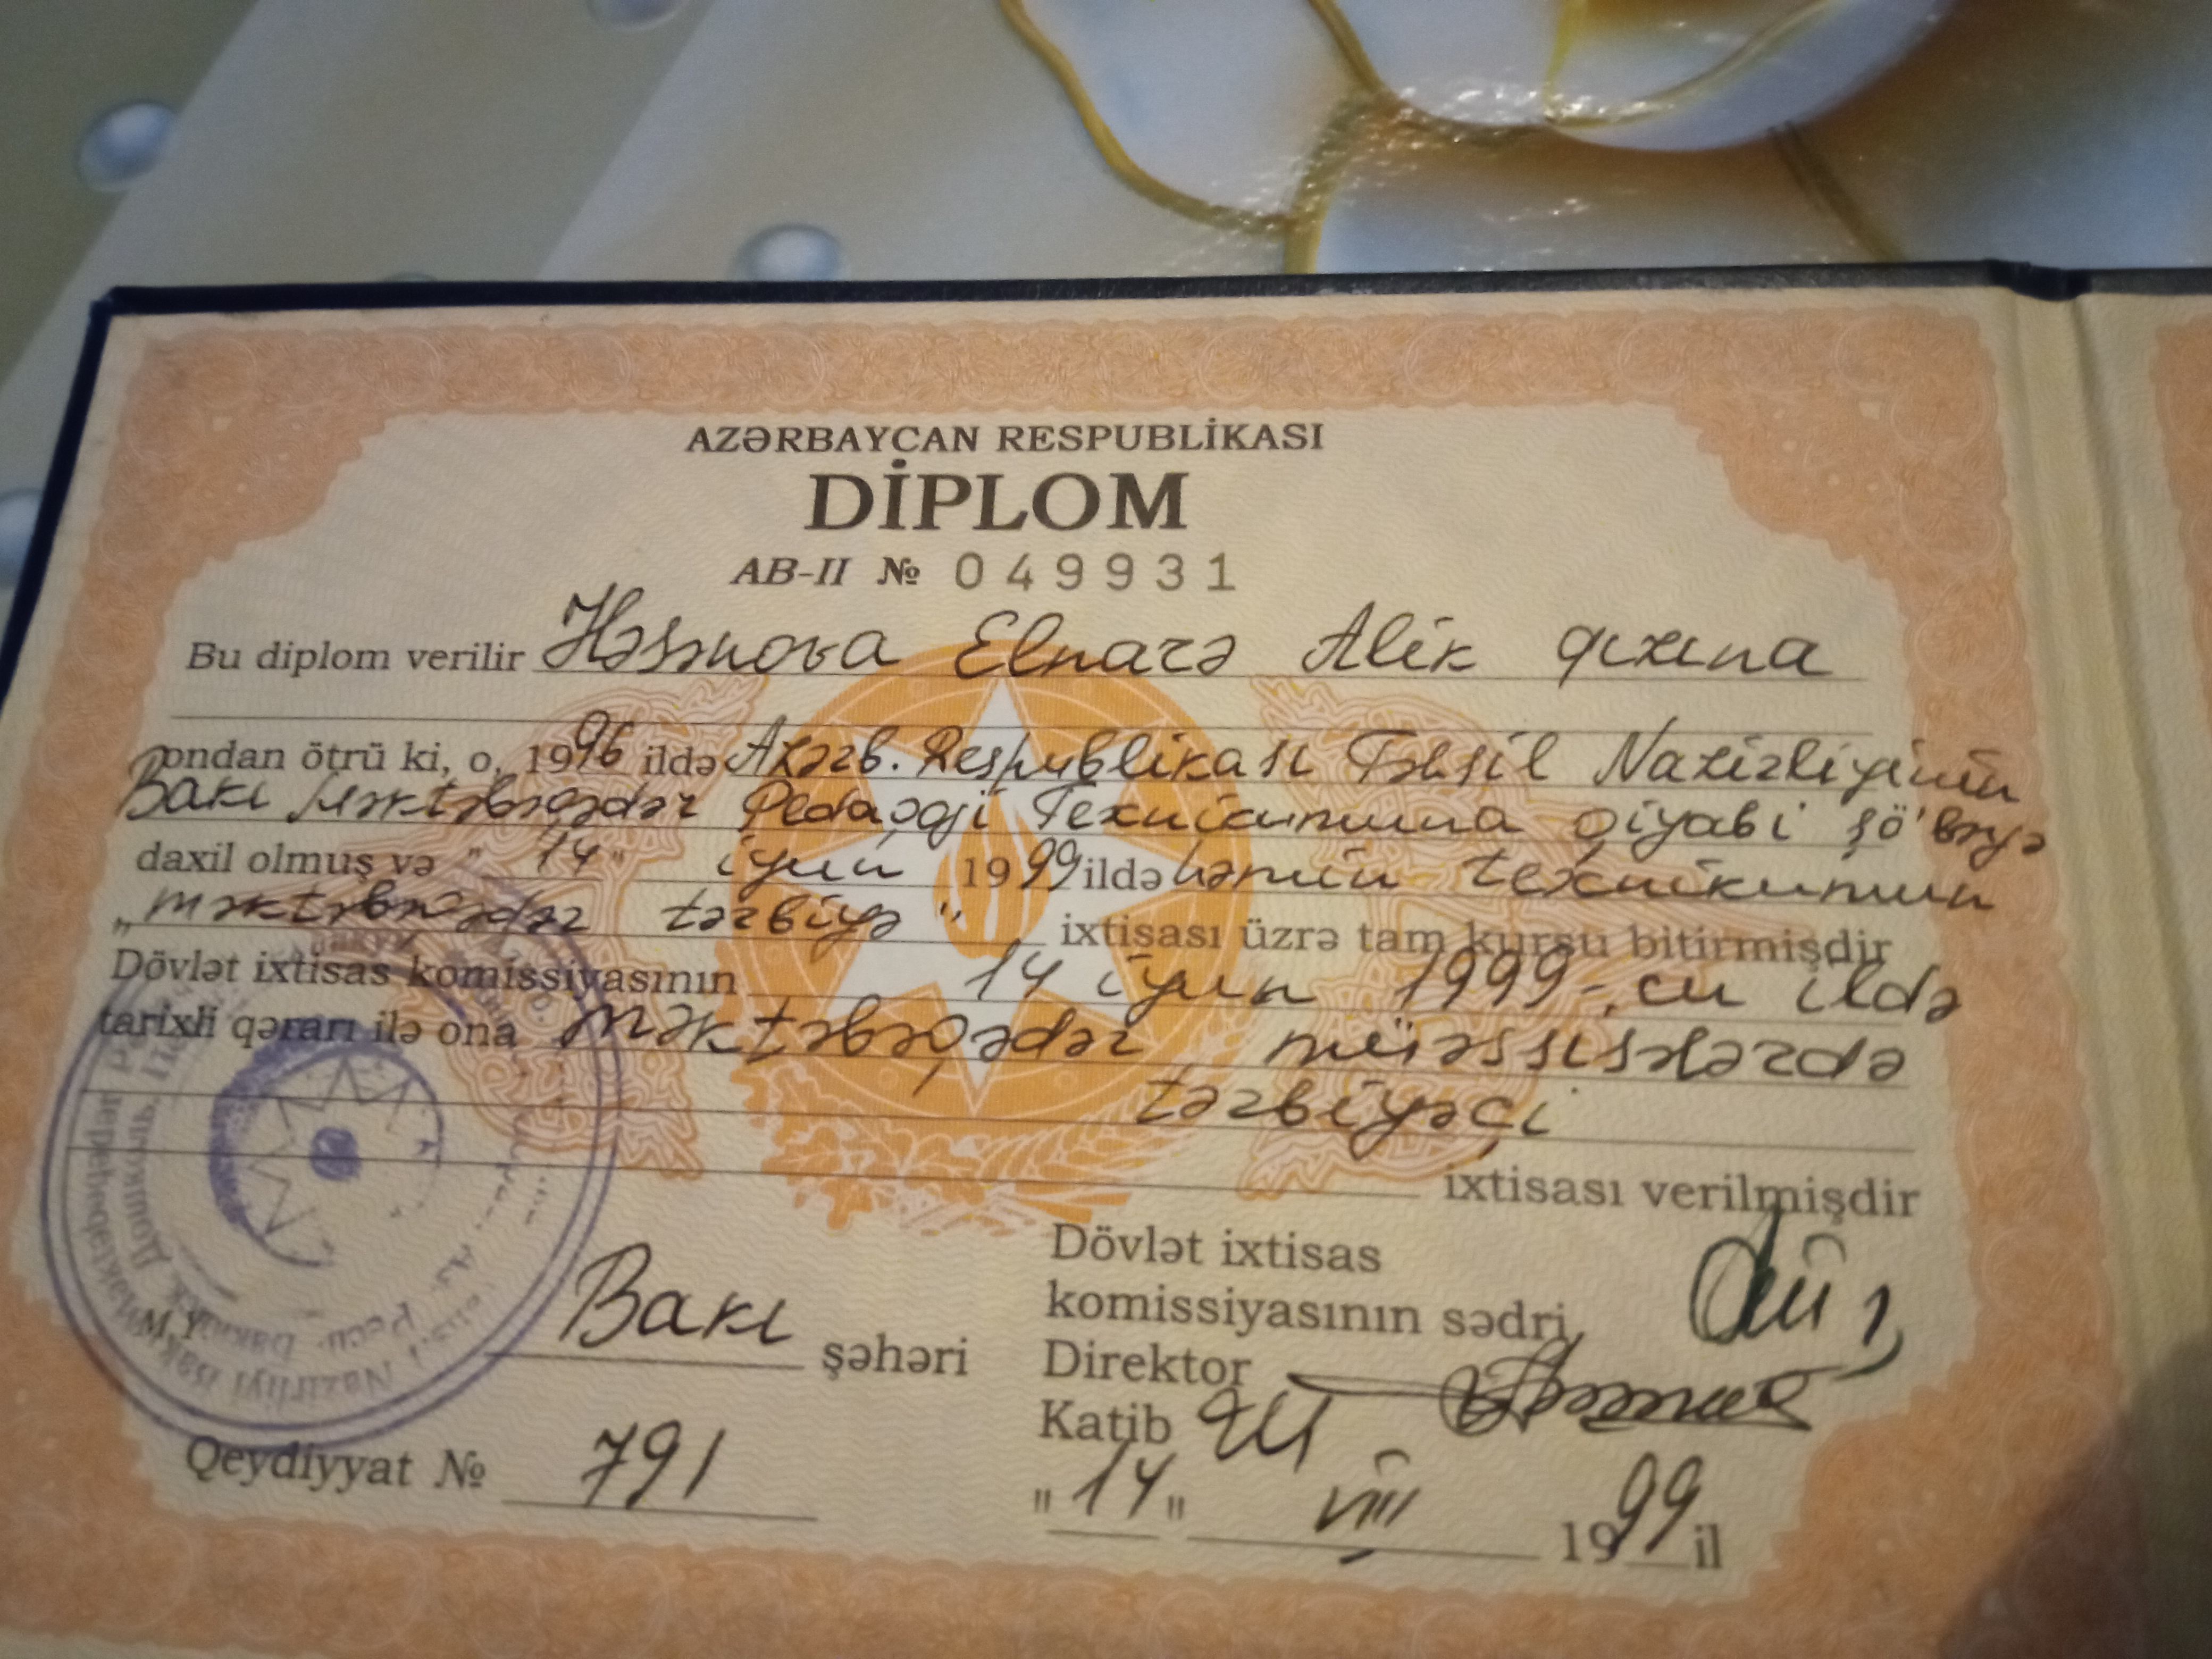 AZƏRBAYCAN RESPUBLİKASI
DİPLOM
AB-II № 049931
Bu diplom verilir Həsənova Elnarə Alik qızına
ondan ötrü ki, o, 1996 ildə Azərb. Respublikası Təhsil Nazirliyinin
Bakı Məktəbəqədər Pedaqoji Texnikumuna qiyabi şö'bəyə
daxil olmuş və "14" iyun 1999 ildə həmin texnikumun
„məktəbəqədər tərbiyə" ixtisası üzrə tam kursu bitirmişdir
Dövlət ixtisas komissiyasının 14 iyun 1999-cu ildə
tarixli qərarı ilə ona məktəbəqədər müəssisələrdə
tərbiyəçi
ixtisası verilmişdir
Dövlət ixtisas
komissiyasının sədri
Bakı şəhəri
Direktor
Katib
Qeydiyyat № 791
"14" VIII 1999 il
M.Y.